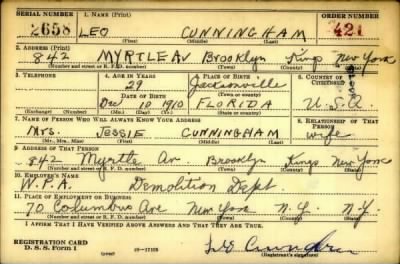 SERIAL NUMBER 1. NAME (Print) ORDER NUMBER
2658 LEO CUNNINGHAM 421
(First) (Middle) (Last)
2. ADDRESS (Print)
842 MYRTLE AV Brooklyn Kings New York
(Number and street or R. F. D. number) (Town) (County) (State)
3. TELEPHONE 4. AGE IN YEARS 5. PLACE OF BIRTH 6. COUNTRY OF CITIZENSHIP
29 Jacksonville
DATE OF BIRTH (Town or county)
Dec 10 1910 FLORIDA U.S.A.
(Exchange) (Number) (Mo.) (Day) (Yr.) (State or country)
7. NAME OF PERSON WHO WILL ALWAYS KNOW YOUR ADDRESS 8. RELATIONSHIP OF THAT PERSON
Mrs. JESSIE CUNNINGHAM wife
(Mr., Mrs., Miss) (First) (Middle) (Last)
9. ADDRESS OF THAT PERSON
842 Myrtle Av Brooklyn Kings New York
(Number and street or R. F. D. number) (Town) (County) (State)
10. EMPLOYER'S NAME
W.P.A. Demolition Dept.
11. PLACE OF EMPLOYMENT OR BUSINESS
70 Columbus Ave New York N.Y. N.Y.
(Number and street or R. F. D. number) (Town) (County) (State)
I AFFIRM THAT I HAVE VERIFIED ABOVE ANSWERS AND THAT THEY ARE TRUE.
REGISTRATION CARD
D. S. S. Form 1
(Registrant's signature)